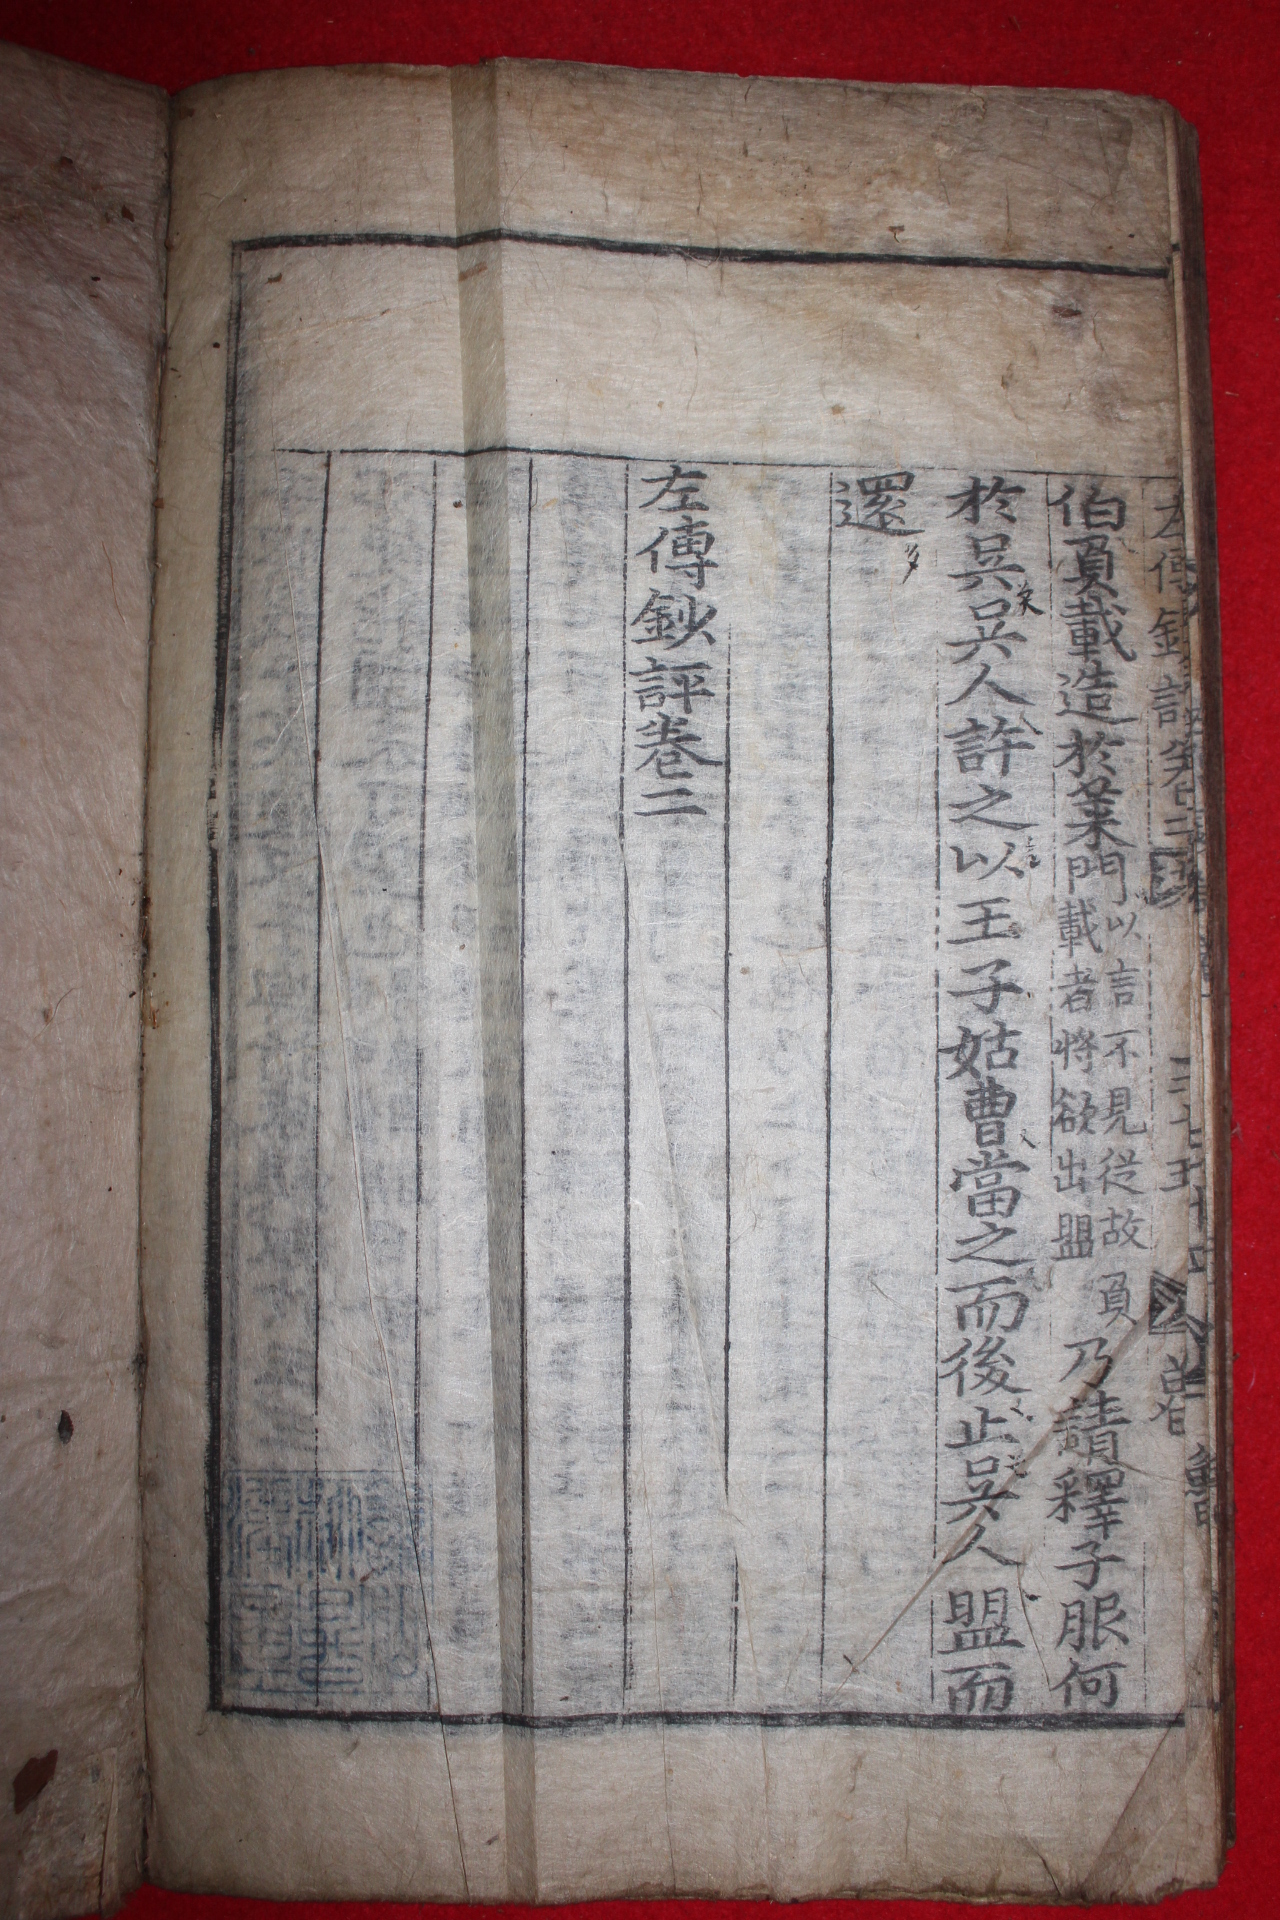 左傳鈔評卷二
伯負載造於萊門以言不見從故負載者將欲出盟乃請釋子服何
於吳吳人許之以王子姑曹當之而後止吳人盟而
還
左傳鈔評卷二